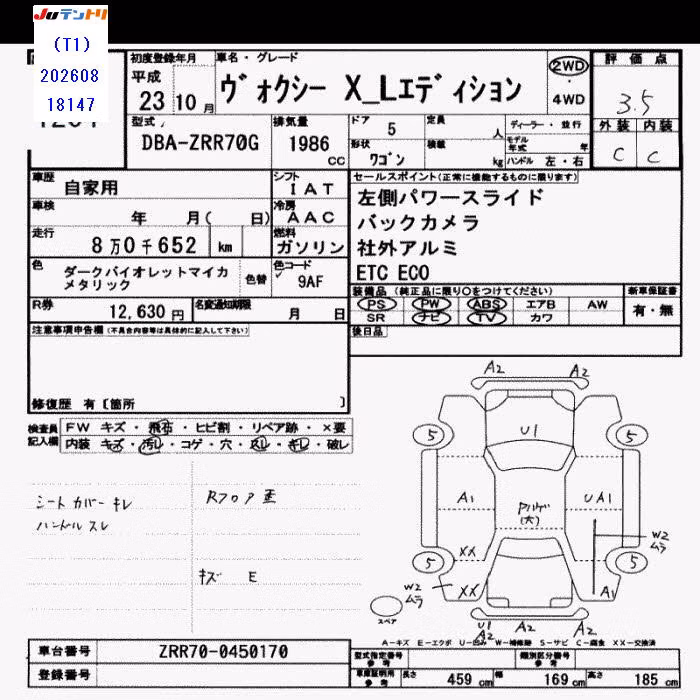 JUテントリ
(T1)
202608
18147
初度登録年月
平成
23年10月
車名・グレード
ヴォクシー X_Lエディション
2WD
4WD
評価点
3.5
外装 内装
C C
型式
DBA-ZRR70G
排気量
1986
CC
ドア 5
形状 ワゴン
定員 人
積載 kg
ディーラー・並行
モデル年式 年
ハンドル 左・右
車歴
自家用
シフト
IAT
車検
年 月( 日)
冷房
AAC
走行
8万0千652 km
燃料
ガソリン
色
ダークバイオレットマイカ
メタリック
色替
色コード
9AF
R券
12,630円
名変通知期限
月 日
セールスポイント(正常に機能するものに限ります)
左側パワースライド
バックカメラ
社外アルミ
ETC ECO
装備品(純正品に限り○をつけてください)
PS PW ABS エアB AW
SR ナビ TV カワ
新車保証書
有・無
後日品
注意事項申告欄(不具合内容等は具体的に記入して下さい)
修復歴 有[箇所 ]
検査員
記入欄
FW キズ・飛石・ヒビ割・リペア跡・×要
内装 キズ・汚レ・コゲ・穴・スレ・キレ・破レ
シートカバーキレ
ハンドルスレ
Rフロア
キズ E
A2 A2
5 5
U1
A1
UA1
Pハゲ
(大)
W2
ムラ
XX
5 5
W2
ムラ
XX
A1
スペア
U1
A2
A2
A-キズ E-エクボ U-凹み W-補修跡 S-サビ C-腐食 XX-交換済
車台番号
ZRR70-0450170
登録番号
型式指定番号
参考
類別区分番号
参考
車庫証明用
参考
長さ 459 cm
幅 169 cm
高さ 185 cm